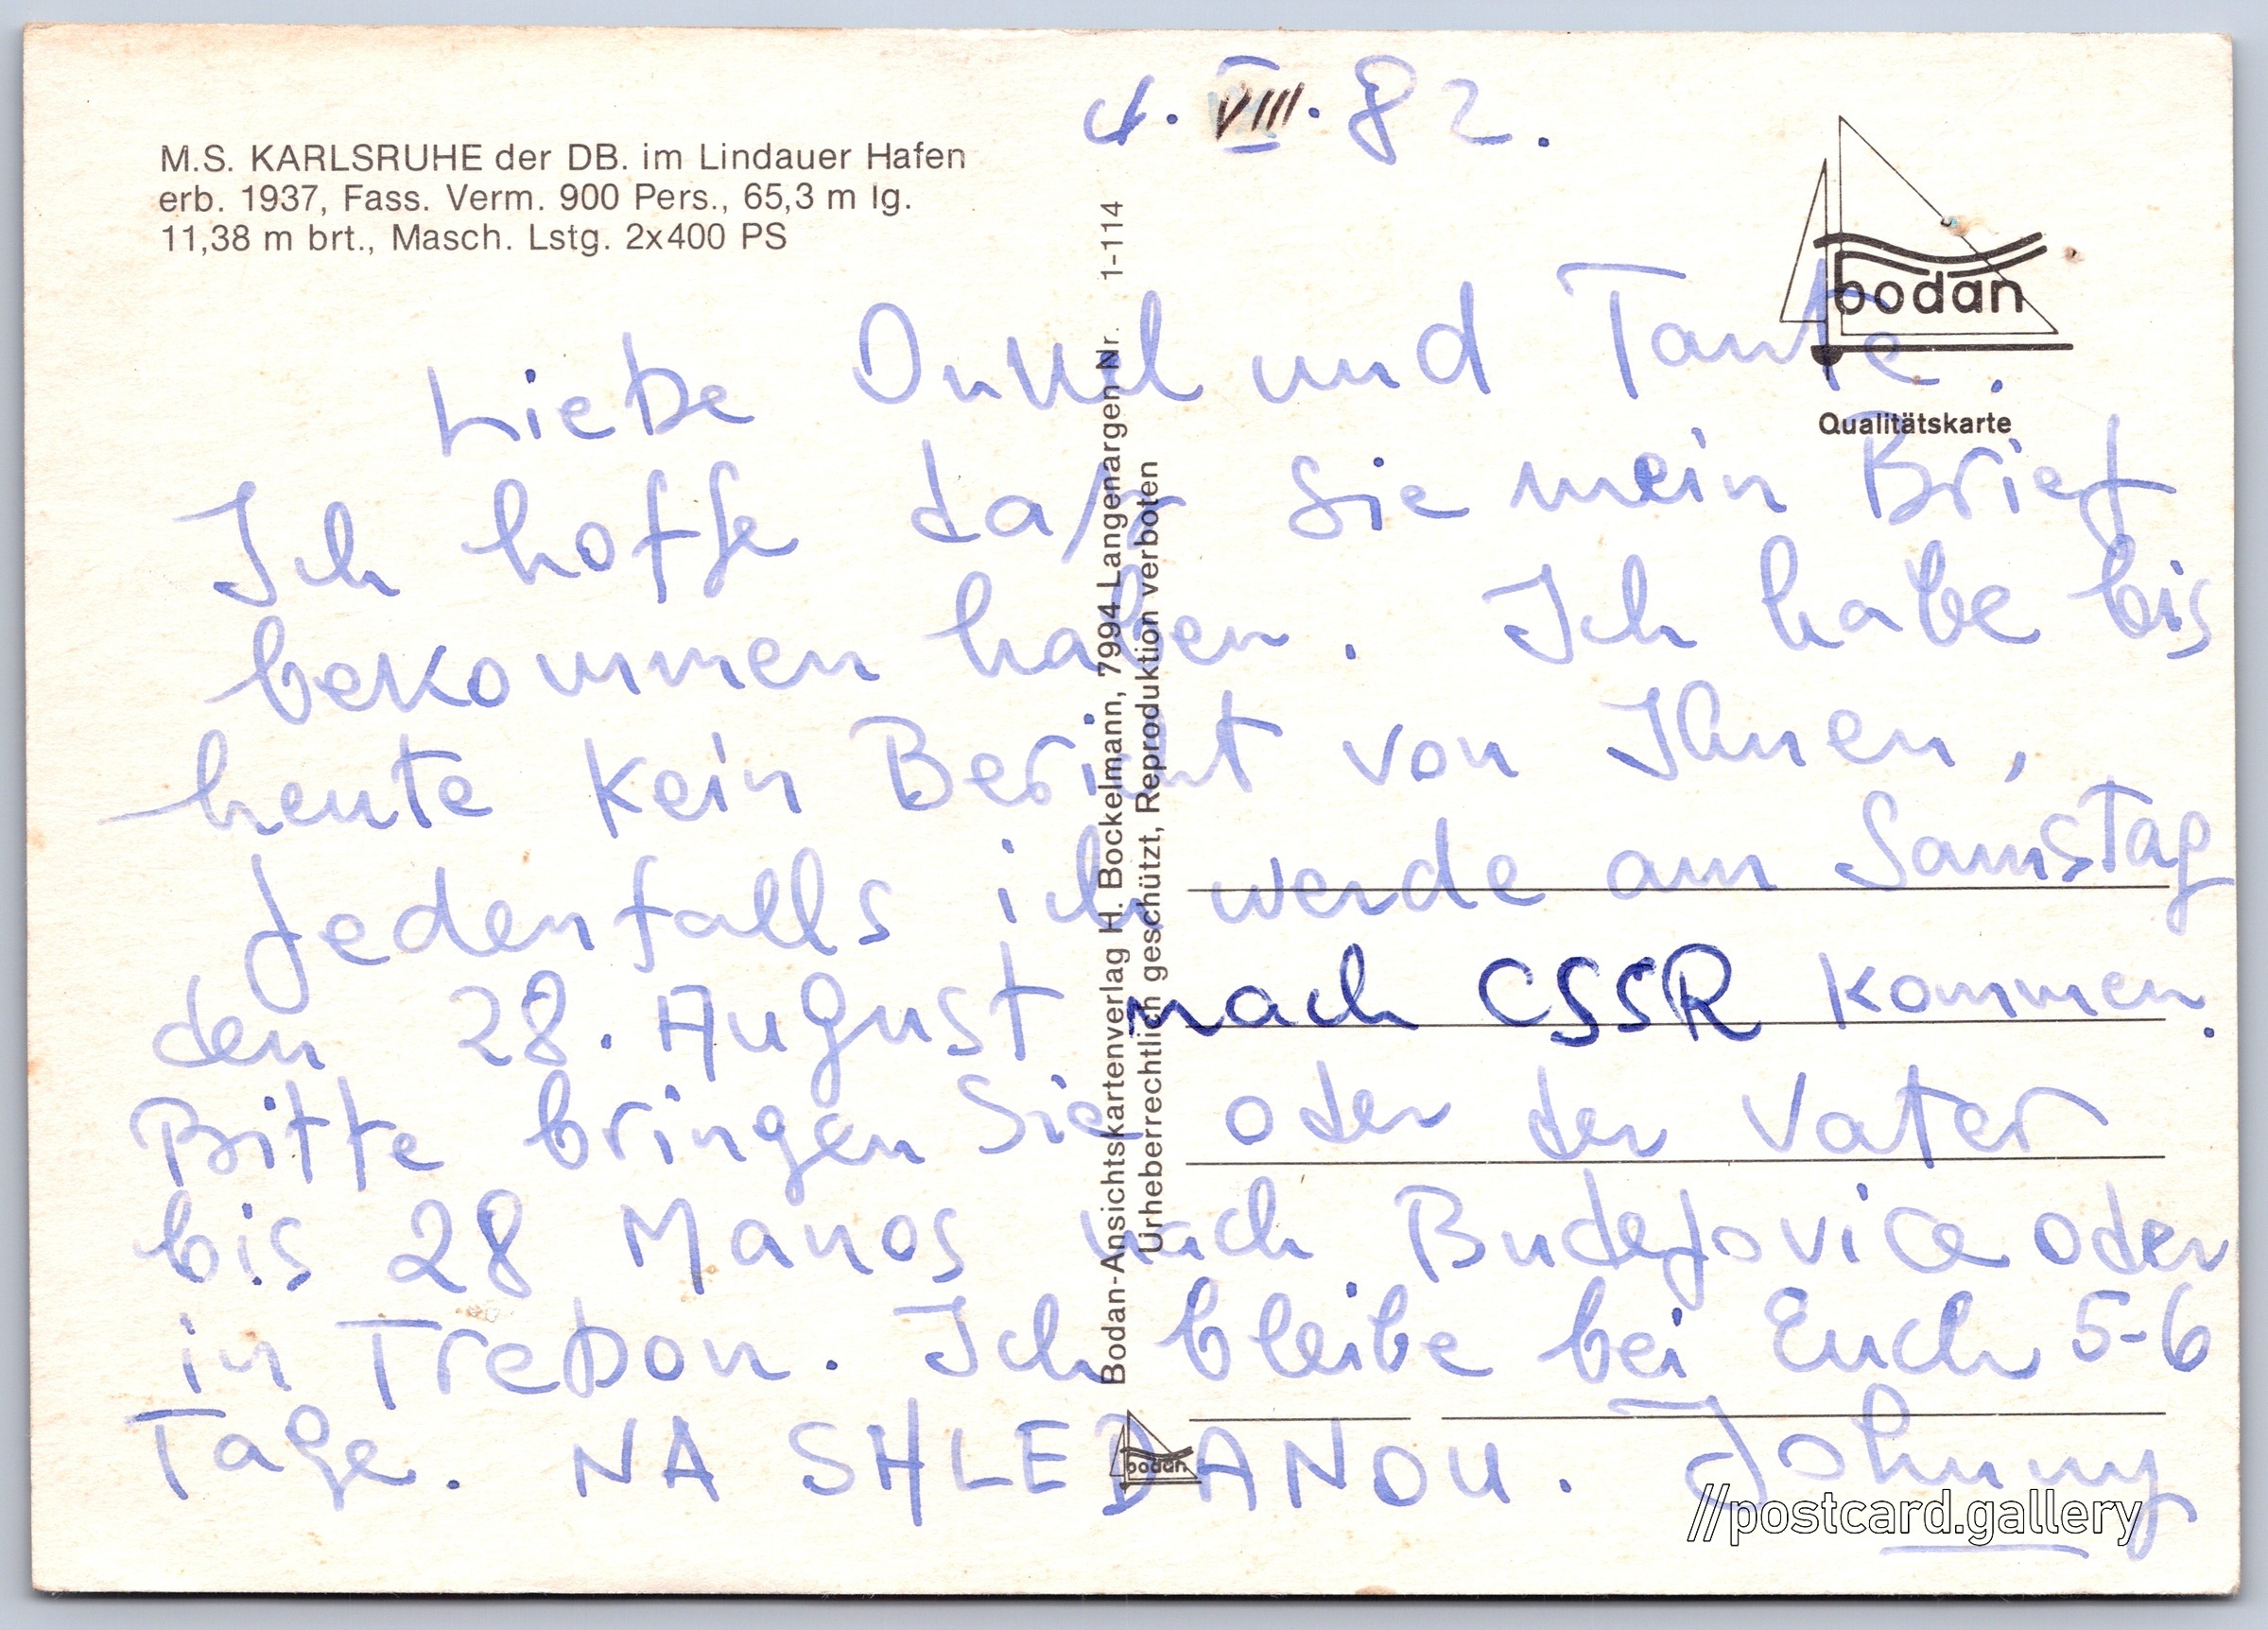 4. VIII. 82.
M.S. KARLSRUHE der DB. im Lindauer Hafen
erb. 1937, Fass. Verm. 900 Pers., 65,3 m lg.
11,38 m brt., Masch. Lstg. 2x400 PS
bodan
Qualitätskarte
Liebe Onkel und Tante.
Ich hoffe daß Sie mein Brief
bekommen haben. Ich habe bis
heute kein Bericht von Ihnen,
Jedenfalls ich werde am Samstag
den 28. August nach CSSR kommen.
Bitte bringen Sie oder der Vater
bis 28 Manos nach Budejovice oder
in Trebon. Ich bleibe bei Euch 5-6
Tage. NA SHLEDANOU. Johnny
Bodan-Ansichtskartenverlag H. Bockelmann, 7994 Langenargen Nr. 1-114
Urheberrechtlich geschützt, Reproduktion verboten
bodan
//postcard.gallery